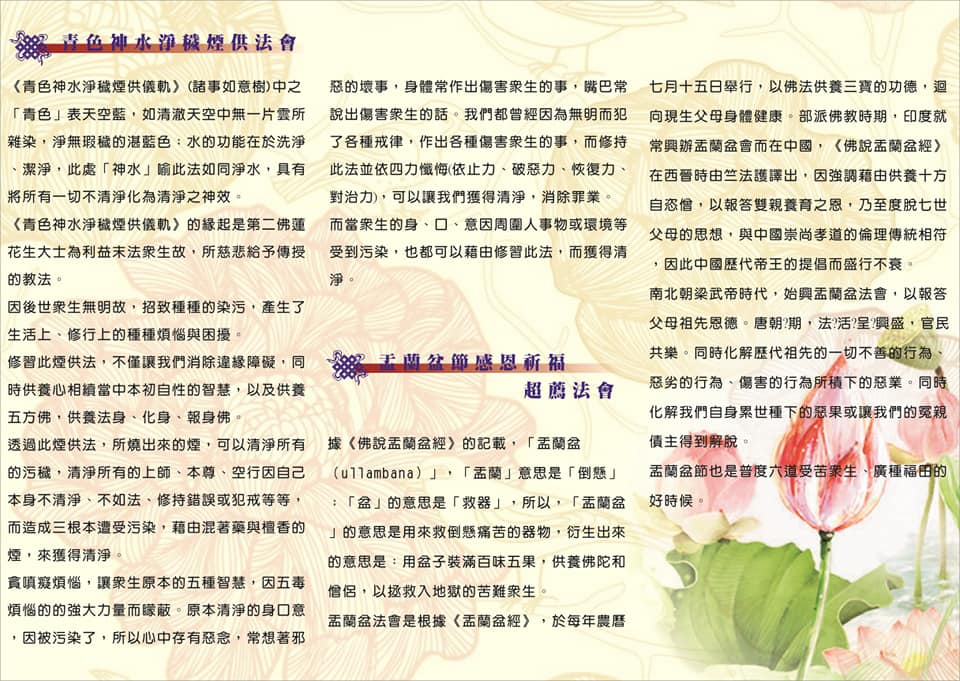 青色神水淨穢煙供法會
《青色神水淨穢煙供儀軌》(諸事如意樹)中之
「青色」表天空藍，如清澈天空中無一片雲所
雜染，淨無瑕穢的湛藍色；水的功能在於洗淨
、潔淨，此處「神水」喻此法如同淨水，具有
將所有一切不清淨化為清淨之神效。
《青色神水淨穢煙供儀軌》的緣起是第二佛蓮
花生大士為利益末法眾生故，所慈悲給予傳授
的教法。
因後世眾生無明故，招致種種的染污，產生了
生活上、修行上的種種煩惱與困擾。
修習此煙供法，不僅讓我們消除違緣障礙，同
時供養心相續當中本初自性的智慧，以及供養
五方佛，供養法身、化身、報身佛。
透過此煙供法，所燒出來的煙，可以清淨所有
的污穢，清淨所有的上師、本尊、空行因自己
本身不清淨、不如法、修持錯誤或犯戒等等，
而造成三根本遭受污染，藉由混著藥與檀香的
煙，來獲得清淨。
貪嗔癡煩惱，讓眾生原本的五種智慧，因五毒
煩惱的的強大力量而曚蔽。原本清淨的身口意
，因被污染了，所以心中存有惡念，常想著邪
惡的壞事，身體常作出傷害眾生的事，嘴巴常
說出傷害眾生的話。我們都曾經因為無明而犯
了各種戒律，作出各種傷害眾生的事，而修持
此法並依四力懺悔(依止力、破惡力、恢復力、
對治力)，可以讓我們獲得清淨，消除罪業。
而當眾生的身、口、意因周圍人事物或環境等
受到污染，也都可以藉由修習此法，而獲得清
淨。
盂蘭盆節感恩祈福
超薦法會
據《佛說盂蘭盆經》的記載，「盂蘭盆
（ullambana）」，「盂蘭」意思是「倒懸」
；「盆」的意思是「救器」，所以，「盂蘭盆
」的意思是用來救倒懸痛苦的器物，衍生出來
的意思是：用盆子裝滿百味五果，供養佛陀和
僧侶，以拯救入地獄的苦難眾生。
盂蘭盆法會是根據《盂蘭盆經》，於每年農曆
七月十五日舉行，以佛法供養三寶的功德，迴
向現生父母身體健康。部派佛教時期，印度就
常興辦盂蘭盆會而在中國，《佛說盂蘭盆經》
在西晉時由竺法護譯出，因強調藉由供養十方
自恣僧，以報答雙親養育之恩，乃至度脫七世
父母的思想，與中國崇尚孝道的倫理傳統相符
，因此中國歷代帝王的提倡而盛行不衰。
南北朝梁武帝時代，始興盂蘭盆法會，以報答
父母祖先恩德。唐朝?期，法?活?呈?興盛，官民
共樂。同時化解歷代祖先的一切不善的行為、
惡劣的行為、傷害的行為所積下的惡業。同時
化解我們自身累世種下的惡果或讓我們的冤親
債主得到解脫。
盂蘭盆節也是普度六道受苦眾生、廣種福田的
好時候。